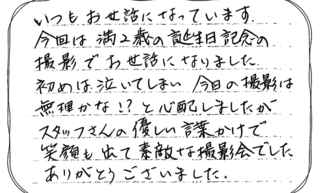 いつもお世話になっています.
今回は満2歳の誕生日記念の
撮影でお世話になりました.
初めは泣いてしまい 今日の撮影は
無理かな!?と心配しましたが
スタッフさんの優しい言葉かけで
笑顔も出て素敵な撮影会でした.
ありがとうございました.